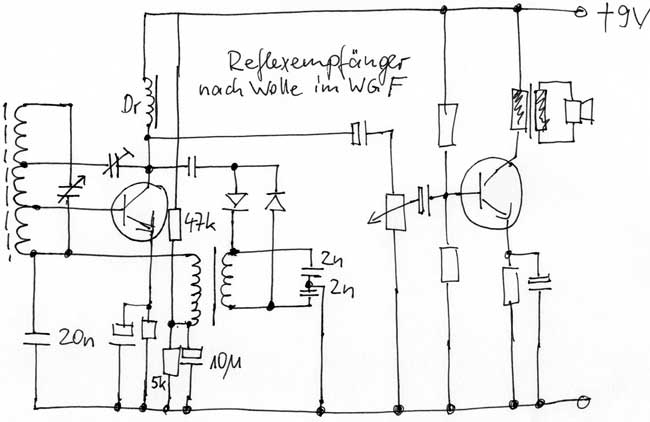 +9V
Reflexempfänger
nach Wolle im WGF
Dr
47k
2n
2n
20n
10µ
5k